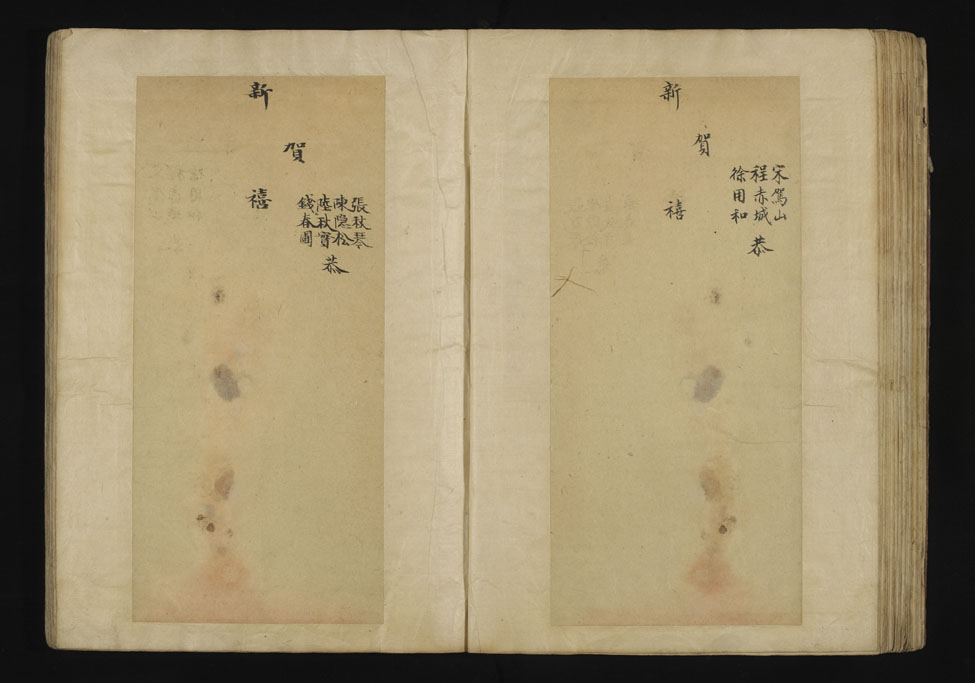 宋駕山
程赤城
徐用和
恭
賀
新
禧
張秋琴
陳隠松
陸秋實
錢春圃
恭
賀
新
禧